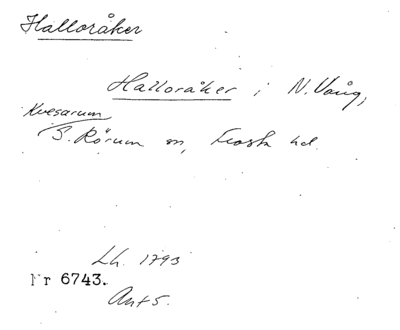 Halloråker
Halloråker i N. Vång,
Kvesarum
S. Rörum sn, Frosta hd.
Lh. 1793
Nr 6743.
Ant 5.